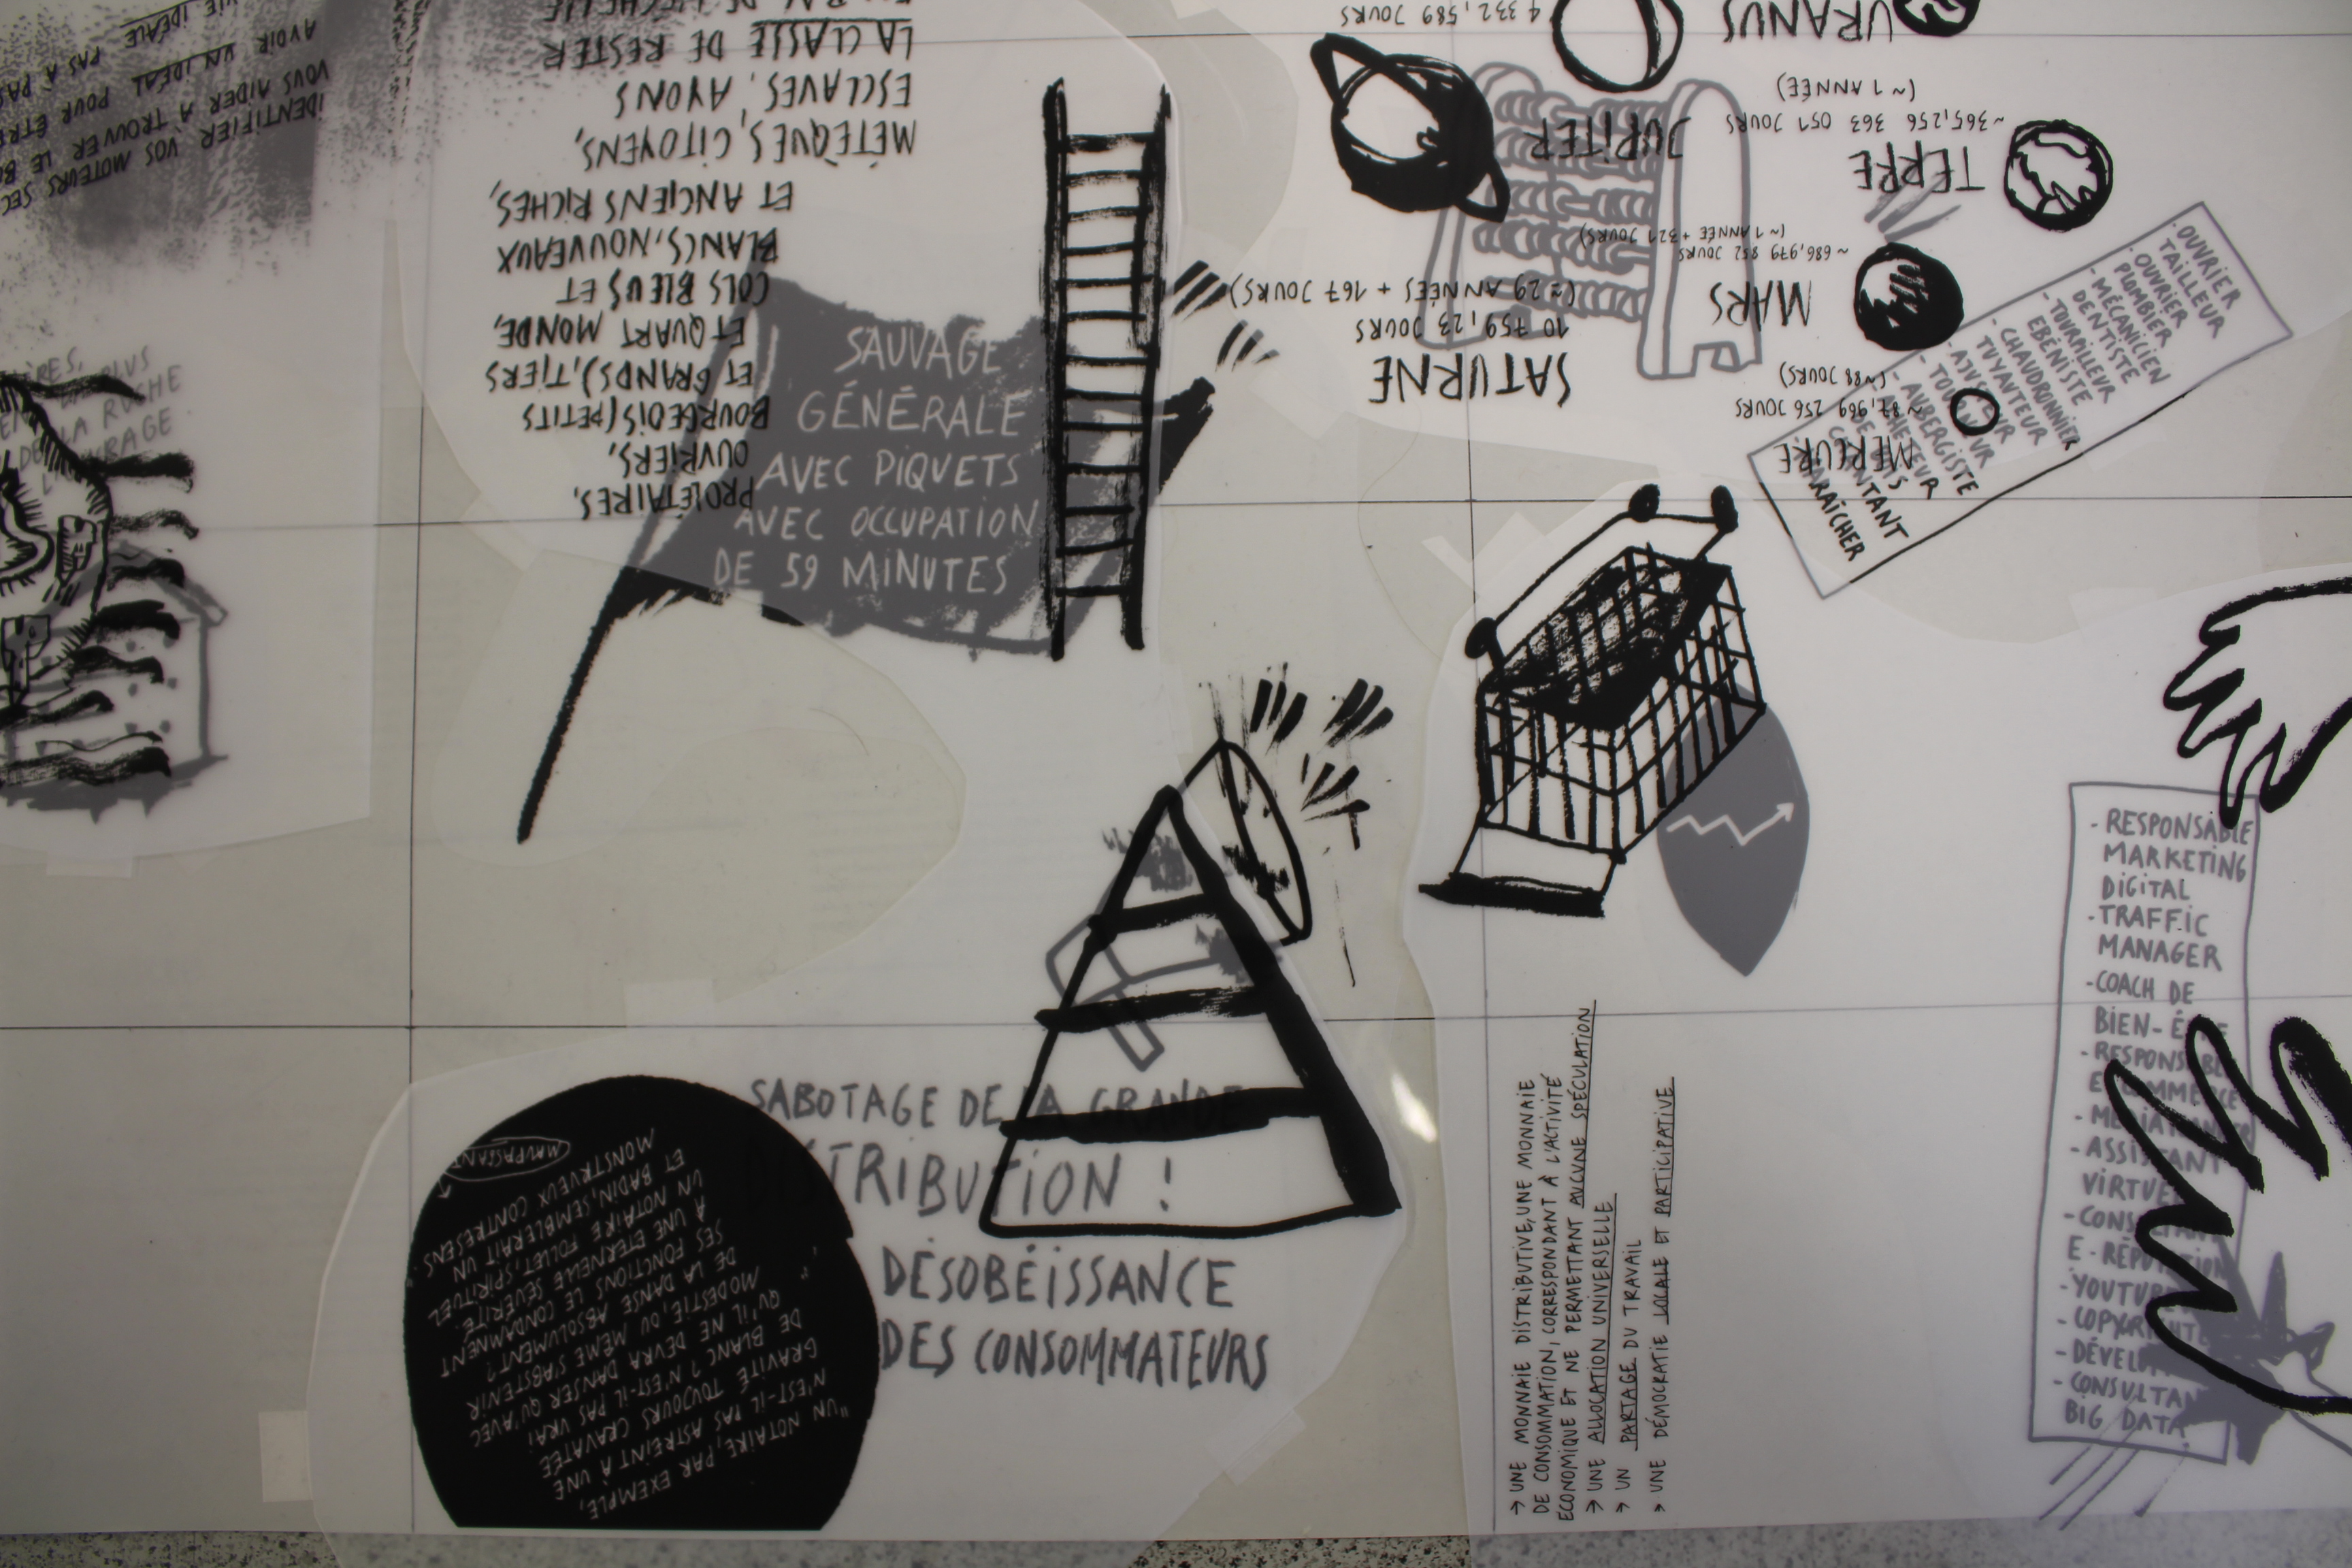 IDENTIFIER VOS MOTEURS
VOUS AIDER À TROUVER LE
AVOIR UN IDÉAL POUR ÊTRE
VIE IDÉALE PAS À PAS
PLUS
LA RUCHE
PROLÉTAIRES,
OUVRIERS,
BOURGEOIS (PETITS
ET GRANDS), TIERS
ET QUART MONDE,
COLS BLEUS ET
BLANCS, NOUVEAUX
ET ANCIENS RICHES,
MÉTÈQUES, CITOYENS,
ESCLAVES, AYONS
LA CLASSE DE RESTER
SAUVAGE
GÉNÉRALE
AVEC PIQUETS
AVEC OCCUPATION
DE 59 MINUTES
SATURNE
10 759,23 JOURS
(≈ 29 ANNÉES + 167 JOURS)
JUPITER
4 332,589 JOURS
URANUS
TERRE
~365,256 363 051 JOURS
(~ 1 ANNÉE)
MARS
~ 686,979 852 JOURS
(~ 1 ANNÉE + 321 JOURS)
MERCURE
~ 87,969 256 JOURS
(~88 JOURS)
- OUVRIER
TAILLEUR
- OUVRIER
PLOMBIER
- MÉCANICIEN
DENTISTE
- TOUPILLEUR
EBÉNISTE
- CHAUDRONNIER
- TUYAUTEUR
- AUBERGISTE
MARAÎCHER
SABOTAGE DE LA GRANDE
DISTRIBUTION !
DÉSOBÉISSANCE
DES CONSOMMATEURS
"UN NOTAIRE, PAR EXEMPLE,
N'EST-IL PAS ASTREINT À UNE
GRAVITÉ TOUJOURS CRAVATÉE
DE BLANC ? N'EST-IL PAS VRAI
QU'IL NE DEVRA DANSER QU'AVEC
MODESTIE, OU MÊME S'ABSTENIR
DE LA DANSE ABSOLUMENT ?
SES FONCTIONS LE CONDAMNENT
À UNE ÉTERNELLE SÉVÉRITÉ.
UN NOTAIRE FOLLET, SPIRITUEL
ET BADIN, SEMBLERAIT UN
MONSTRUEUX CONTRESENS."
MAUPASSANT
→ UNE MONNAIE DISTRIBUTIVE, UNE MONNAIE
DE CONSOMMATION, CORRESPONDANT À L'ACTIVITÉ
ÉCONOMIQUE ET NE PERMETTANT AUCUNE SPÉCULATION
→ UNE ALLOCATION UNIVERSELLE
→ UN PARTAGE DU TRAVAIL
→ UNE DÉMOCRATIE LOCALE ET PARTICIPATIVE
- RESPONSABLE
MARKETING
DIGITAL
- TRAFFIC
MANAGER
- COACH DE
BIEN-ÊTRE
- RESPONSABLE
E-COMMERCE
- ASSISTANT
VIRTUEL
E-RÉPUTATION
- CONSULTANT
BIG DATA